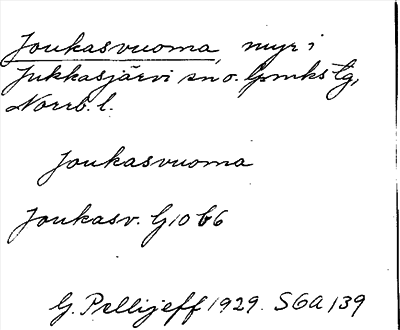 Joukasvuoma, myr i
Jukkasjärvi sn o. lpmkstg,
Norrb. l.
Joukasvuoma
Joukasv. G10 b6
G. Pellijeff 1929. SOA 139